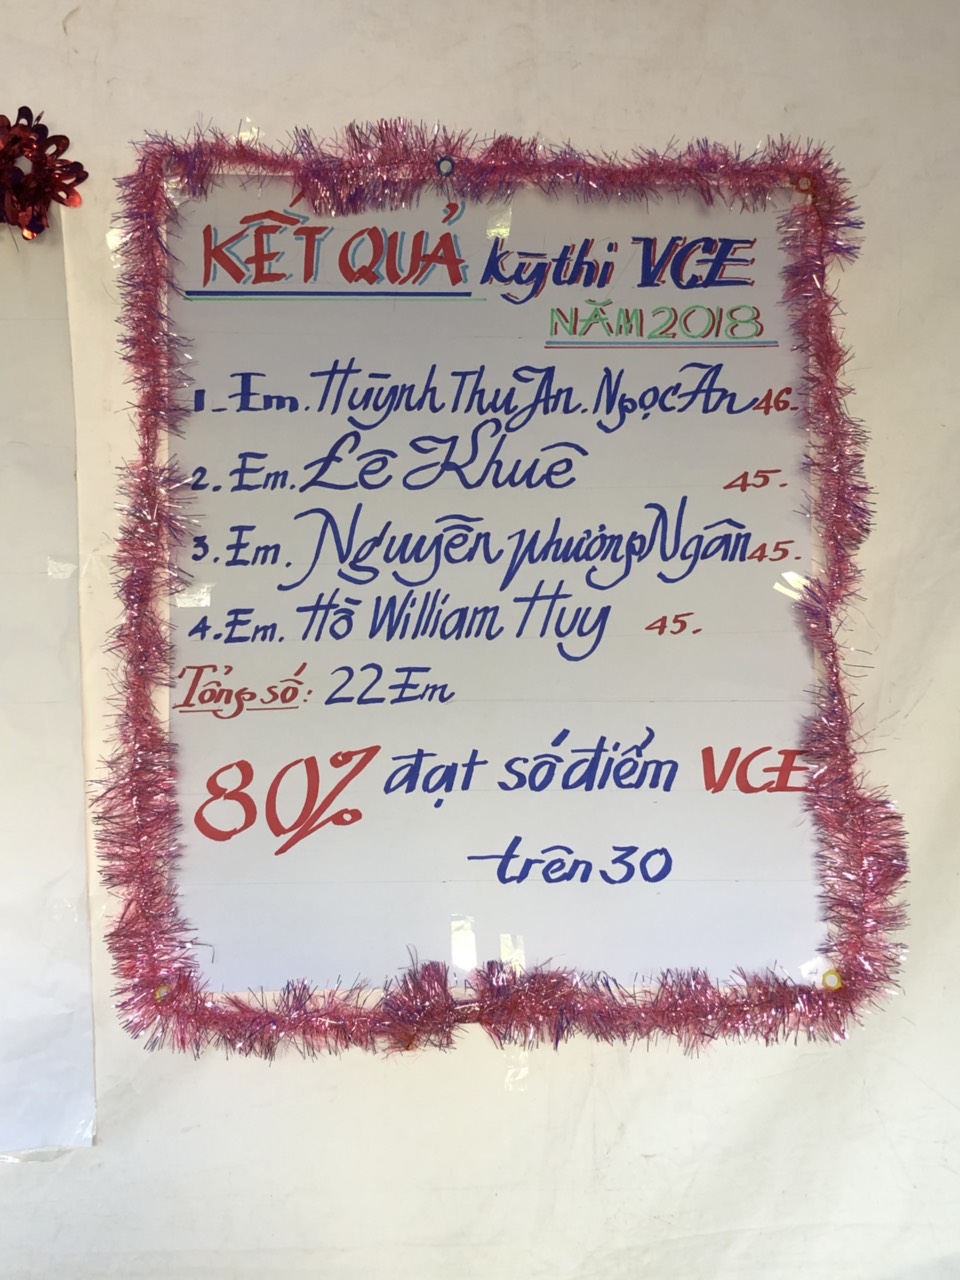 KẾT QUẢ kỳ thi VCE
NĂM 2018
1_ Em. Huỳnh Thu An. Ngọc Ân 46.
2. Em. Lê Khuê 45.
3. Em. Nguyễn Phương Ngân 45.
4. Em. Hồ William Huy 45.
Tổng số: 22 Em
80% đạt số điểm VCE
trên 30